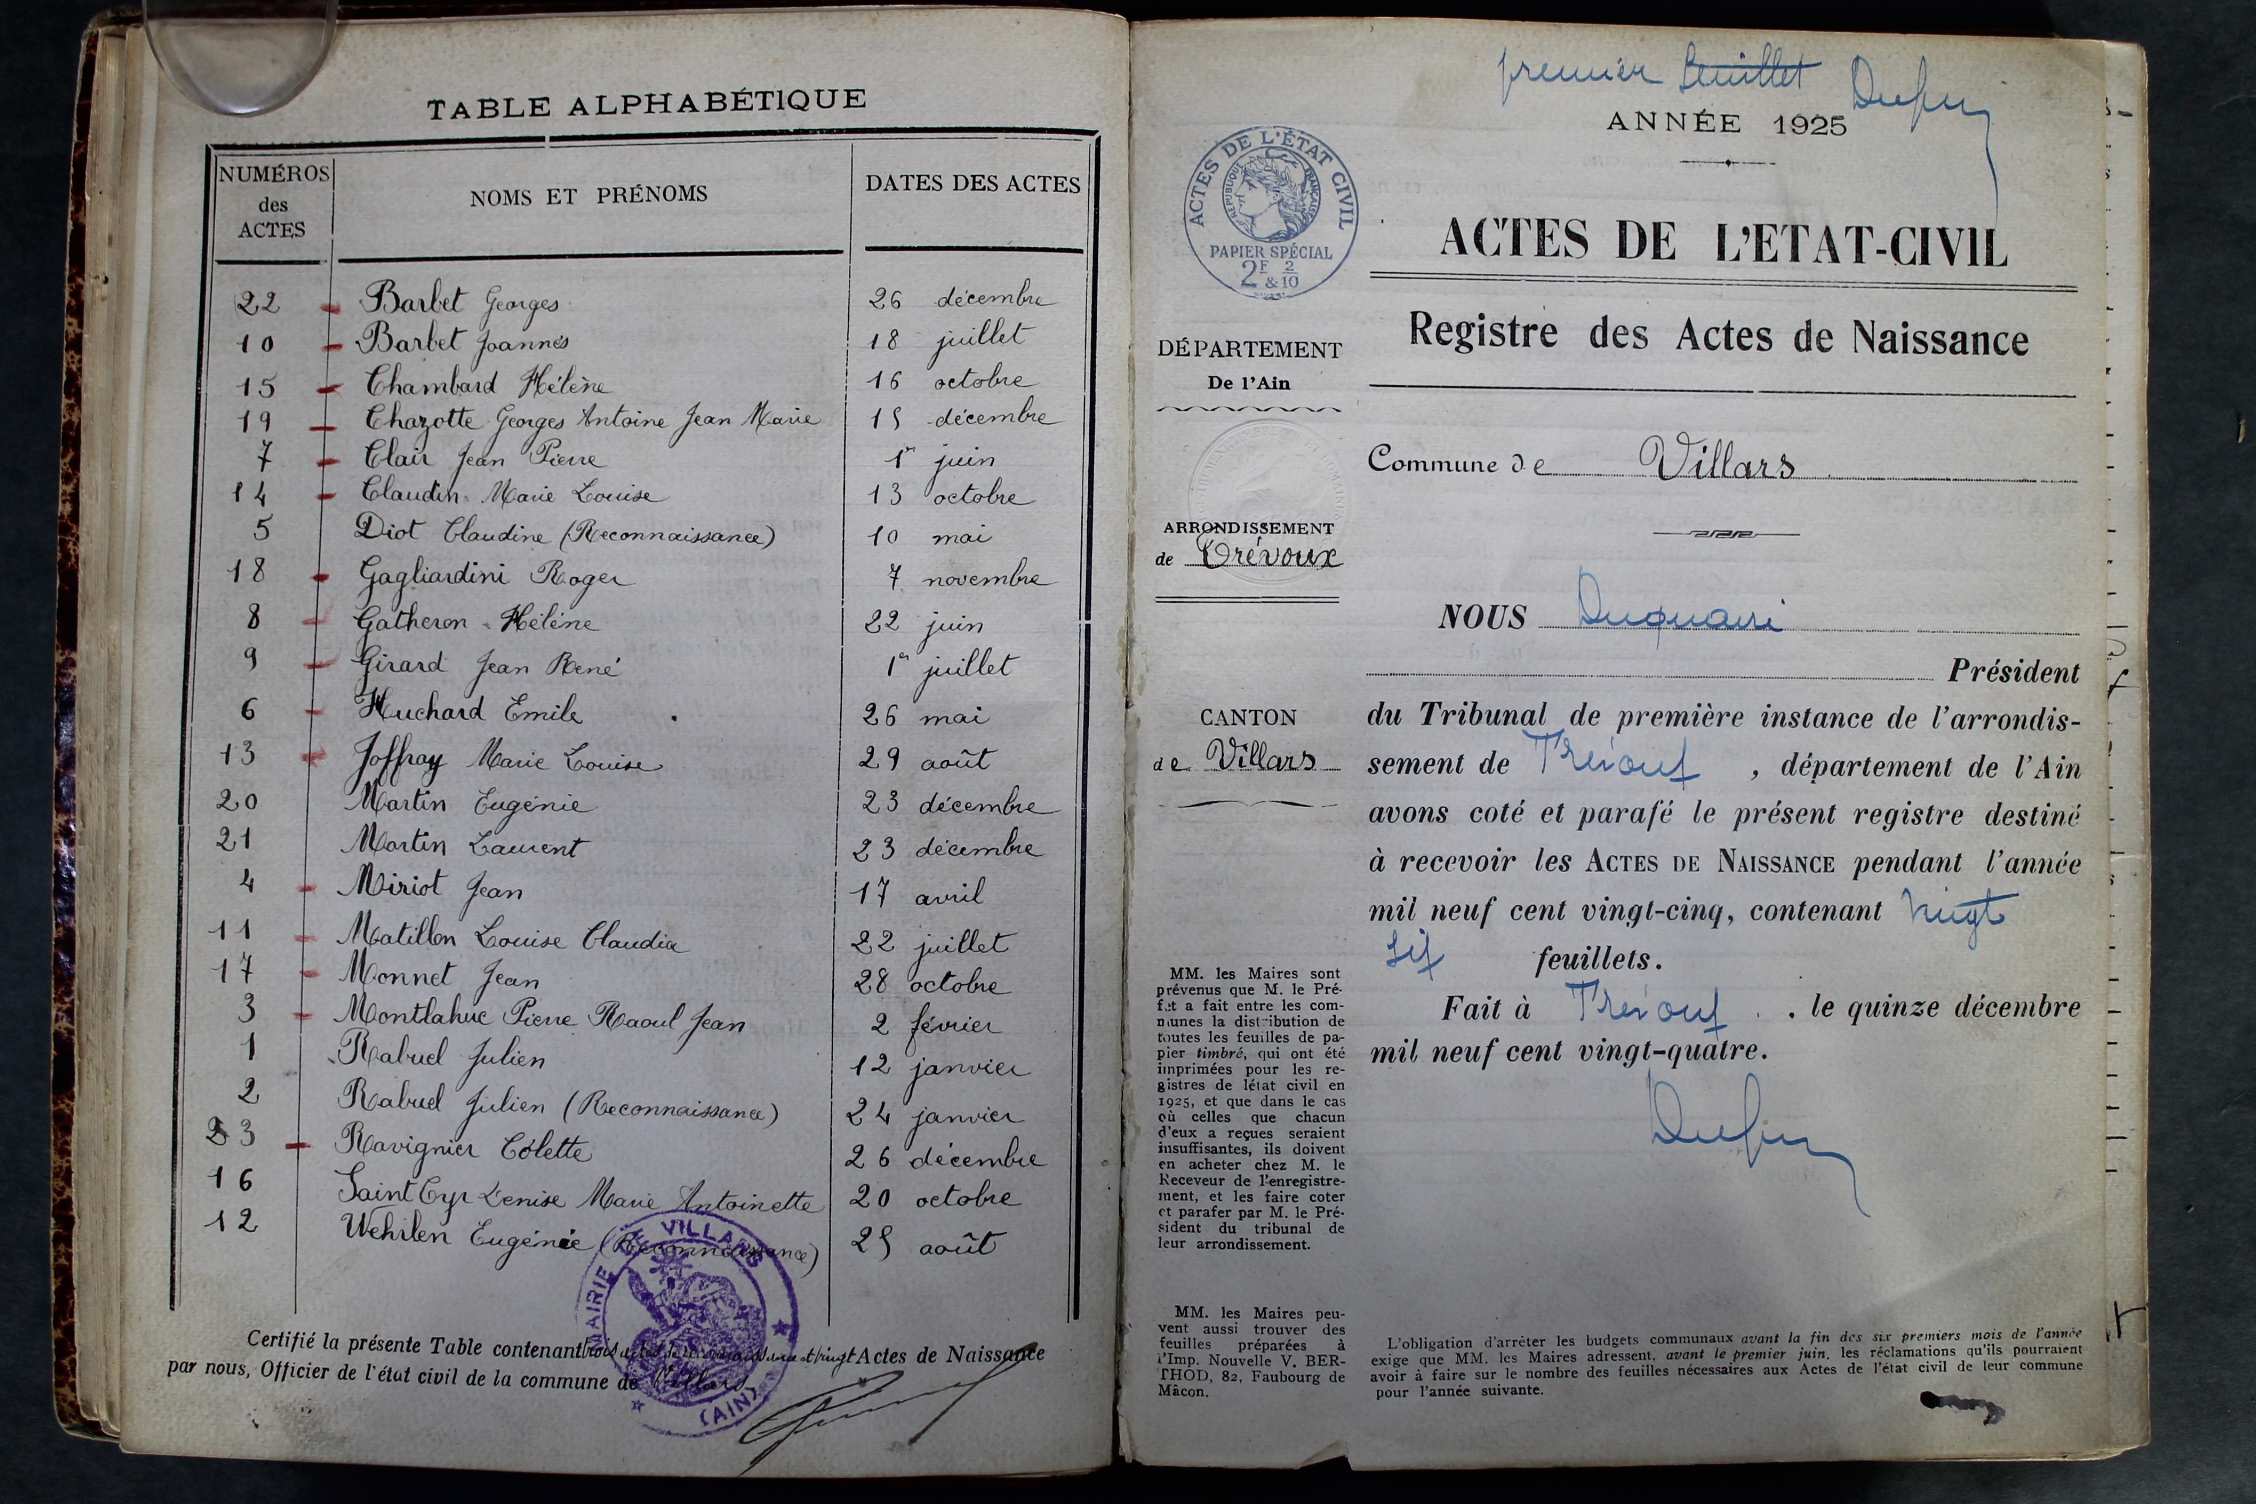 TABLE ALPHABÉTIQUE
NUMÉROS des ACTES NOMS ET PRÉNOMS DATES DES ACTES
22 Barbet Georges 26 décembre
10 Barbet Joannès 18 juillet
15 Chambard Hélène 16 octobre
19 Chazotte Georges Antoine Jean Marie 15 décembre
7 Clair Jean Pierre 1er juin
14 Claudin Marie Louise 13 octobre
5 Diot Claudine (Reconnaissance) 10 mai
18 Gagliardini Roger 7 novembre
8 Gatheron Hélène 22 juin
9 Girard Jean René 1er juillet
6 Huchard Emile 26 mai
13 Joffray Marie Louise 29 août
20 Martin Eugénie 23 décembre
21 Martin Laurent 23 décembre
4 Miriot Jean 17 avril
11 Matillon Louise Claudia 22 juillet
17 Monnet Jean 28 octobre
3 Montlahuc Pierre Raoul Jean 2 février
1 Rabuel Julien 12 janvier
2 Rabuel Julien (Reconnaissance) 24 janvier
23 Ravignier Colette 26 décembre
16 Saint Cyr Denise Marie Antoinette 20 octobre
12 Wehrlen Eugénie (Reconnaissance) 25 août
MAIRIE DE VILLARS
(AIN)
Certifié la présente Table contenant trois actes de reconnaissance et vingt Actes de Naissance
par nous, Officier de l'état civil de la commune de Villars
premier feuillet
ANNÉE 1925
ACTES DE L'ÉTAT CIVIL
RÉPUBLIQUE FRANÇAISE
PAPIER SPÉCIAL
2F & 2/10
ACTES DE L'ETAT-CIVIL
Registre des Actes de Naissance
DÉPARTEMENT
De l'Ain
Commune de Villars
ARRONDISSEMENT
de Trévoux
NOUS
Président
CANTON
de Villars
du Tribunal de première instance de l'arrondis-
sement de Trévoux, département de l'Ain
avons coté et parafé le présent registre destiné
à recevoir les ACTES DE NAISSANCE pendant l'année
mil neuf cent vingt-cinq, contenant vingt
six feuillets.
Fait à Trévoux, le quinze décembre
mil neuf cent vingt-quatre.
MM. les Maires sont
prévenus que M. le Pré-
fet a fait entre les com-
munes la distribution de
toutes les feuilles de pa-
pier timbré, qui ont été
imprimées pour les re-
gistres de létat civil en
1925, et que dans le cas
où celles que chacun
d'eux a reçues seraient
insuffisantes, ils doivent
en acheter chez M. le
Receveur de l'enregistre-
ment, et les faire coter
et parafer par M. le Pré-
sident du tribunal de
leur arrondissement.
MM. les Maires peu-
vent aussi trouver des
feuilles préparées à
l'Imp. Nouvelle V. BER-
THOD, 82, Faubourg de
Mâcon.
L'obligation d'arrêter les budgets communaux avant la fin des six premiers mois de l'année
exige que MM. les Maires adressent, avant le premier juin, les réclamations qu'ils pourraient
avoir à faire sur le nombre des feuilles nécessaires aux Actes de l'état civil de leur commune
pour l'année suivante.